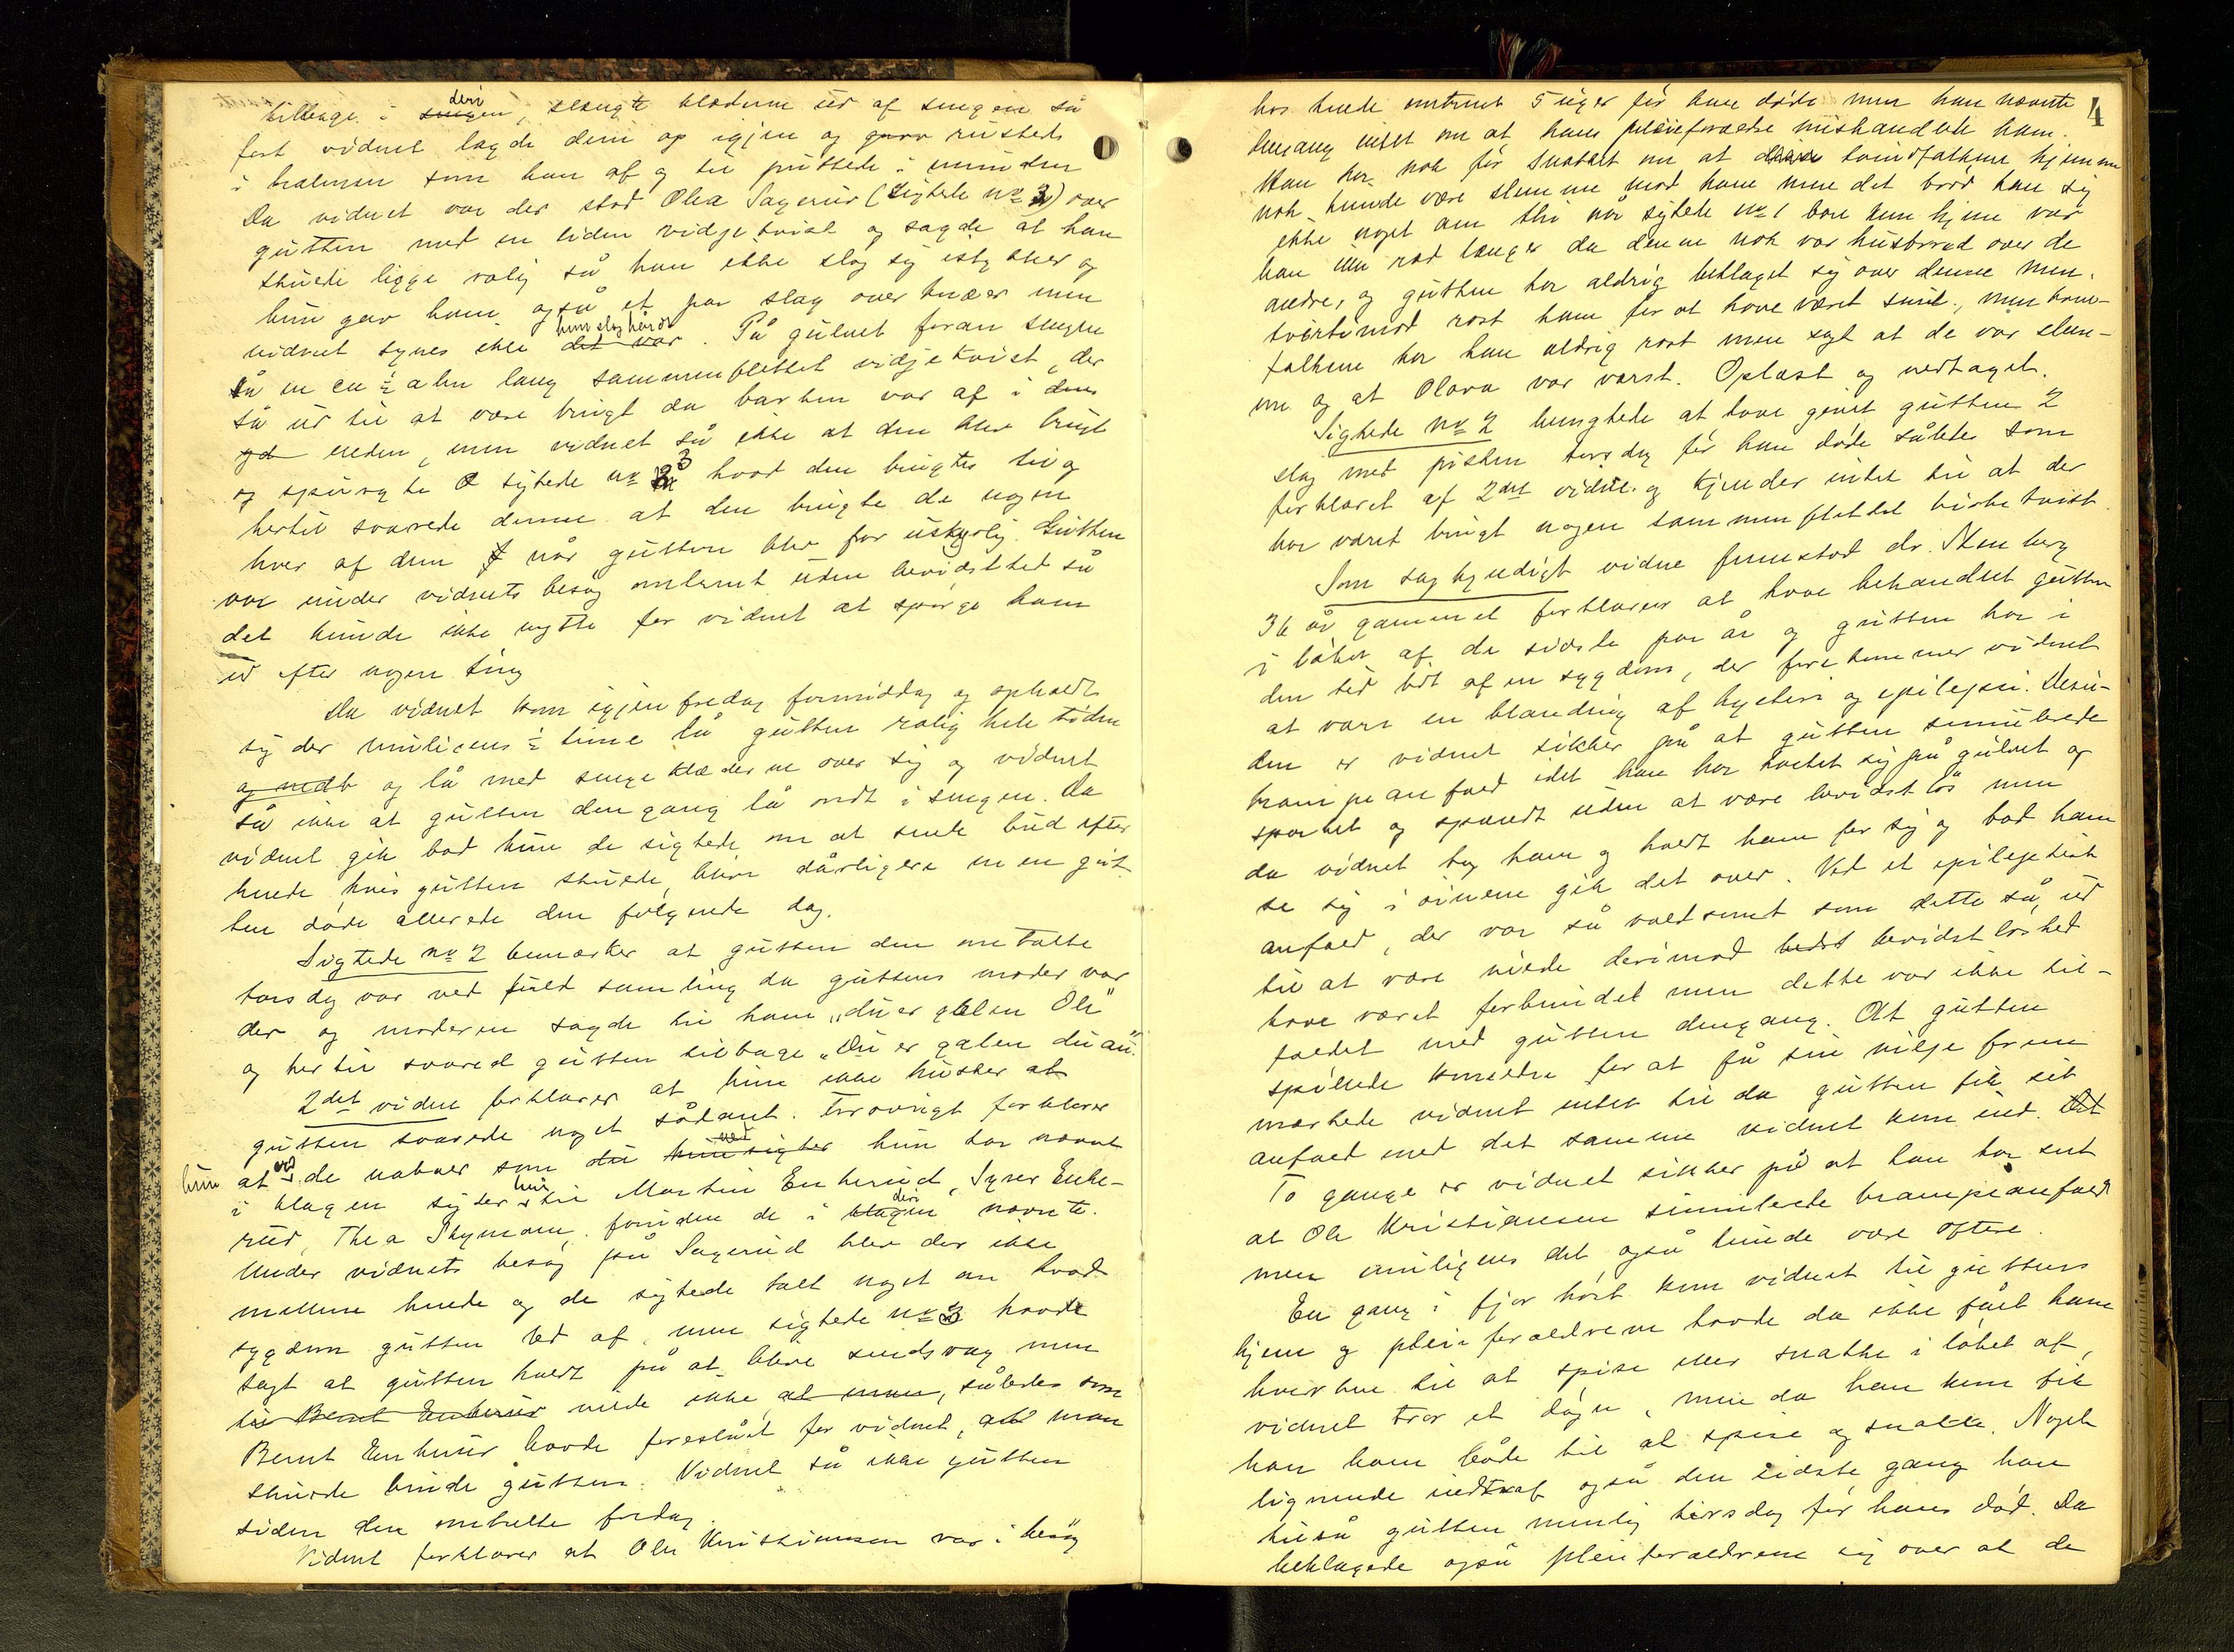 tilbage i sengen deri, slængte klæderne ud af sengen så
fort vidnet lagde dem op igjen og rustede
i halmen som han af og til puttede i munden
Da vidnet var der stod Olea Sagerud (Sigtede No 3) over
gutten med en liden vidjekvist og sagde at han
skulde ligge rolig så han ikke slog sig istykker og
hun gav ham også et par slag over knæer men
vidnet synes ikke det var hun slog hårdt. På gulvet foran sengen
lå en ca ½ alen lang sammenflettet vidjekvist, der
så ud til at være brugt da barken var af i den
yd enden, men vidnet så ikke at den blev brugt
og spurgte sigtede No 3 hvad den brugtes til og
hertil svarede denne at den brugte de nogen
hver af dem når gutten blev for ustyrlig. Gutten
var under vidnets besøg omtrent uden bevidsthed så
det kunde ikke nytte for vidnet at spørge ham
ud efter nogen ting
Da vidnet kom igjen fredag formiddag og opholdt
sig der muligens ½ time lå gutten rolig hele tiden
og nedb og lå med sengeklæderne over sig og vidnet
så ikke at gutten dengang lå ondt i sengen. Da
vidnet gik bad hun de sigtede om at sende bud efter
hende, hvis gutten skulde blive dårligere men gut-
ten døde allerede den følgende dag.
Sigtede No 2 bemærker at gutten den omtalte
torsdag var ved fuld samling da guttens moder var
der og moderen sagde til ham „du er galen Ole"
og hertil svared gutten tilbage „Du er galen du åu".
2det vidne forklarer at hun ikke husker at
gutten svarede noget sådant. Forøvrigt forklarer
hun at ved de naboer som du hun sigter ved hun har nævnt
i klagen sigter hun til Martin Enkerud, Syver Enke-
rud, Thea Skymoen, foruden de i klagen deri nævnte.
Under vidnets besøg på Sagerud blev der ikke
mellem hende og de sigtede talt noget om hvad
sygdom gutten led af, men sigtede No 3 havde
sagt at gutten holdt på at blive sindsvag men
til Bernt Enkerud vilde ikke at man, således som
Bernt Enkerud havde foreslået for vidnet, at man
skulde binde gutten. Vidnet så ikke gutten
siden den omtalte fredag.
Vidnet forklarer at Ole Kristiansen var i besøg
4
hos hende omtrent 5 uger før han døde men han nævnte
dengang intet om at hans pleieforældre mishandlede ham.
Han har nok før snakket om at disse kvindfolkene hjemme
nok kunde være slemme mod ham men det brød han sig
ikke noget om thi når sigtede No 1 bare kom hjem var
han ikke ræd længer da denne nok var husbond over de
andre, og gutten har aldrig beklaget sig over denne men
tvertimod rost ham for at have været snil, men kvind-
folkene har han aldrig rost men sagt at de var slem-
me og at Olava var værst. Oplæst og vedtaget.
Sigtede No 2 benegtede at have givet gutten 2
slag med pisken torsdag før han døde således som
forklaret af 2det vidne og kjender intet til at der
har været brugt nogen sammenflettet birkekvist.
Som sagkyndigt vidne fremstod dr. Stenberg
36 år gammel forklarer at have behandlet gutten
i løbet af de sidste par år og gutten har i
den tid lidt af en sygdom, der forekommer vidnet
at være en blanding af hysteri og epilepsi. Desu-
den er vidnet sikker på at gutten simulerede
krampeanfald idet han har kastet sig på gulvet og
sparket og spændt uden at være bevidstløs men
da vidnet tog ham og holdt ham for sig og bad ham
se sig i øinene gik det over. Ved et epileptisk
anfald, der var så voldsomt som dette så ud
til at være vilde derimod bedst bevidstløshed
have været forbundet men dette var ikke til-
fældet med gutten dengang. At gutten
spillede komedie for at få sin vilje frem
mærkede vidnet intet til da gutten fik sit
anfald med det samme vidnet kom ind. Det
To gange er vidnet sikker på at han har set
at Ole Kristiansen simulerede krampeanfald
men muligens det også kunde være oftere.
En gang i fjor høst kom vidnet til guttens
hjem og pleieforældrene havde da ikke fået ham
hverken til at spise eller snakke i løbet af,
vidnet tror et døgn, men da han kom fik
han ham både til at spise og snakke. Noget
lignende indtraf også den sidste gang han
tilså gutten nemlig tirsdag før hans død. Da
beklagede også pleieforældrene sig over at de